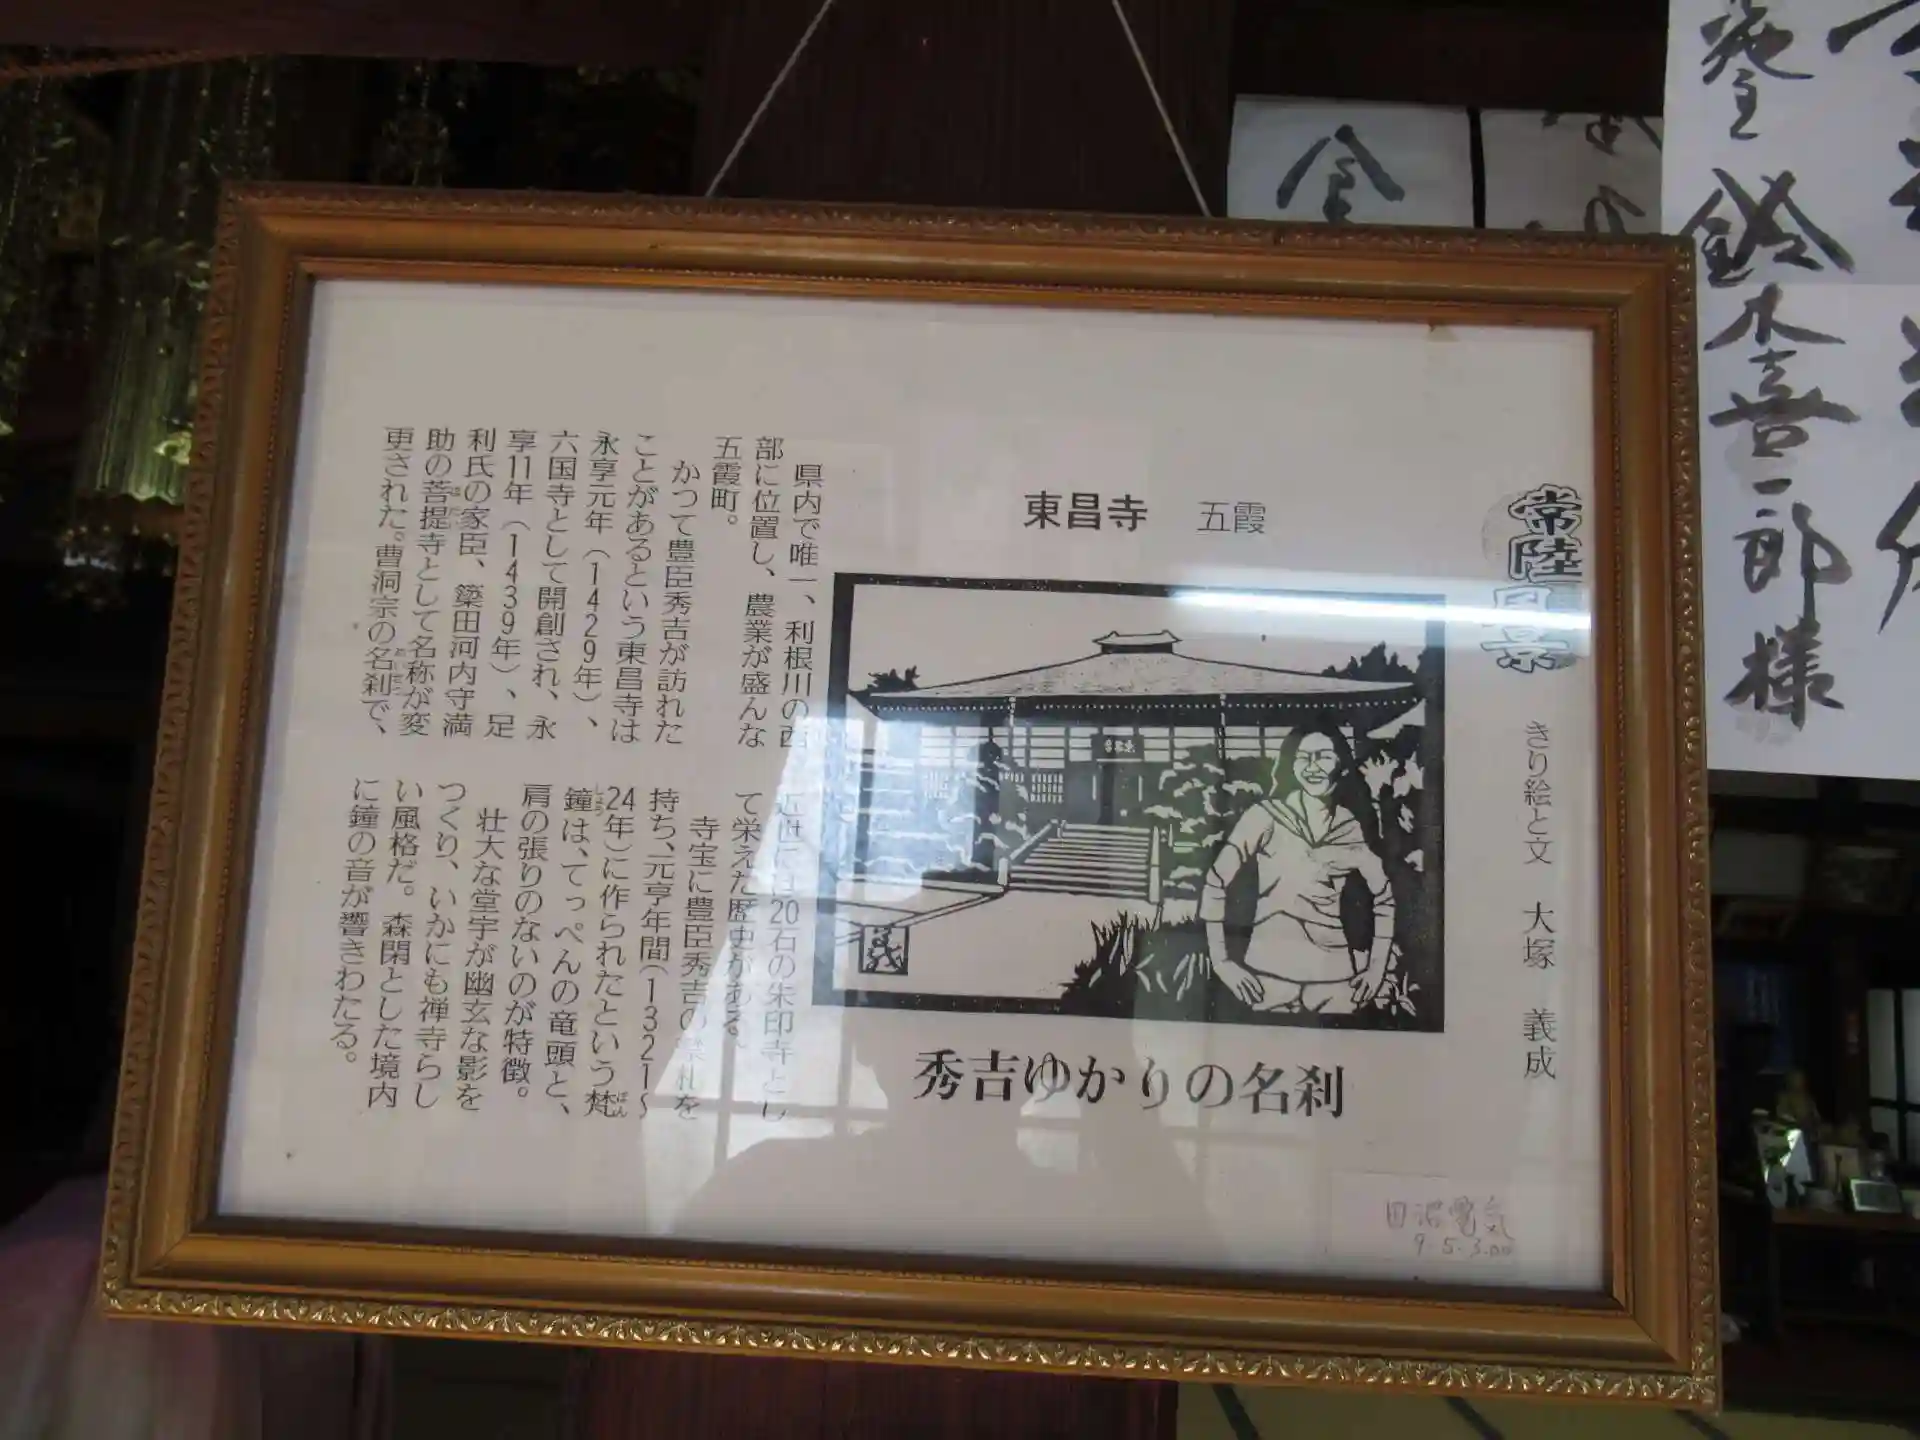 常陸風景
きり絵と文　大塚　義成
東昌寺　五霞
秀吉ゆかりの名刹
県内で唯一、利根川の西
部に位置し、農業が盛んな
五霞町。
かつて豊臣秀吉が訪れた
ことがあるという東昌寺は
永享元年（1429年）、
六国寺として開創され、永
享11年（1439年）、足
利氏の家臣、簗田河内守満
助の菩提寺として名称が変
更された。曹洞宗の名刹で、
近世には20石の朱印寺とし
て栄えた歴史がある。
寺宝に豊臣秀吉の禁札を
持ち、元亨年間（1321〜
24年）に作られたという梵
鐘は、てっぺんの竜頭と、
肩の張りのないのが特徴。
壮大な堂宇が幽玄な影を
つくり、いかにも禅寺らし
い風格だ。森閑とした境内
に鐘の音が響きわたる。
田沼電気
9.5.3.
金
鈴木喜一郎様